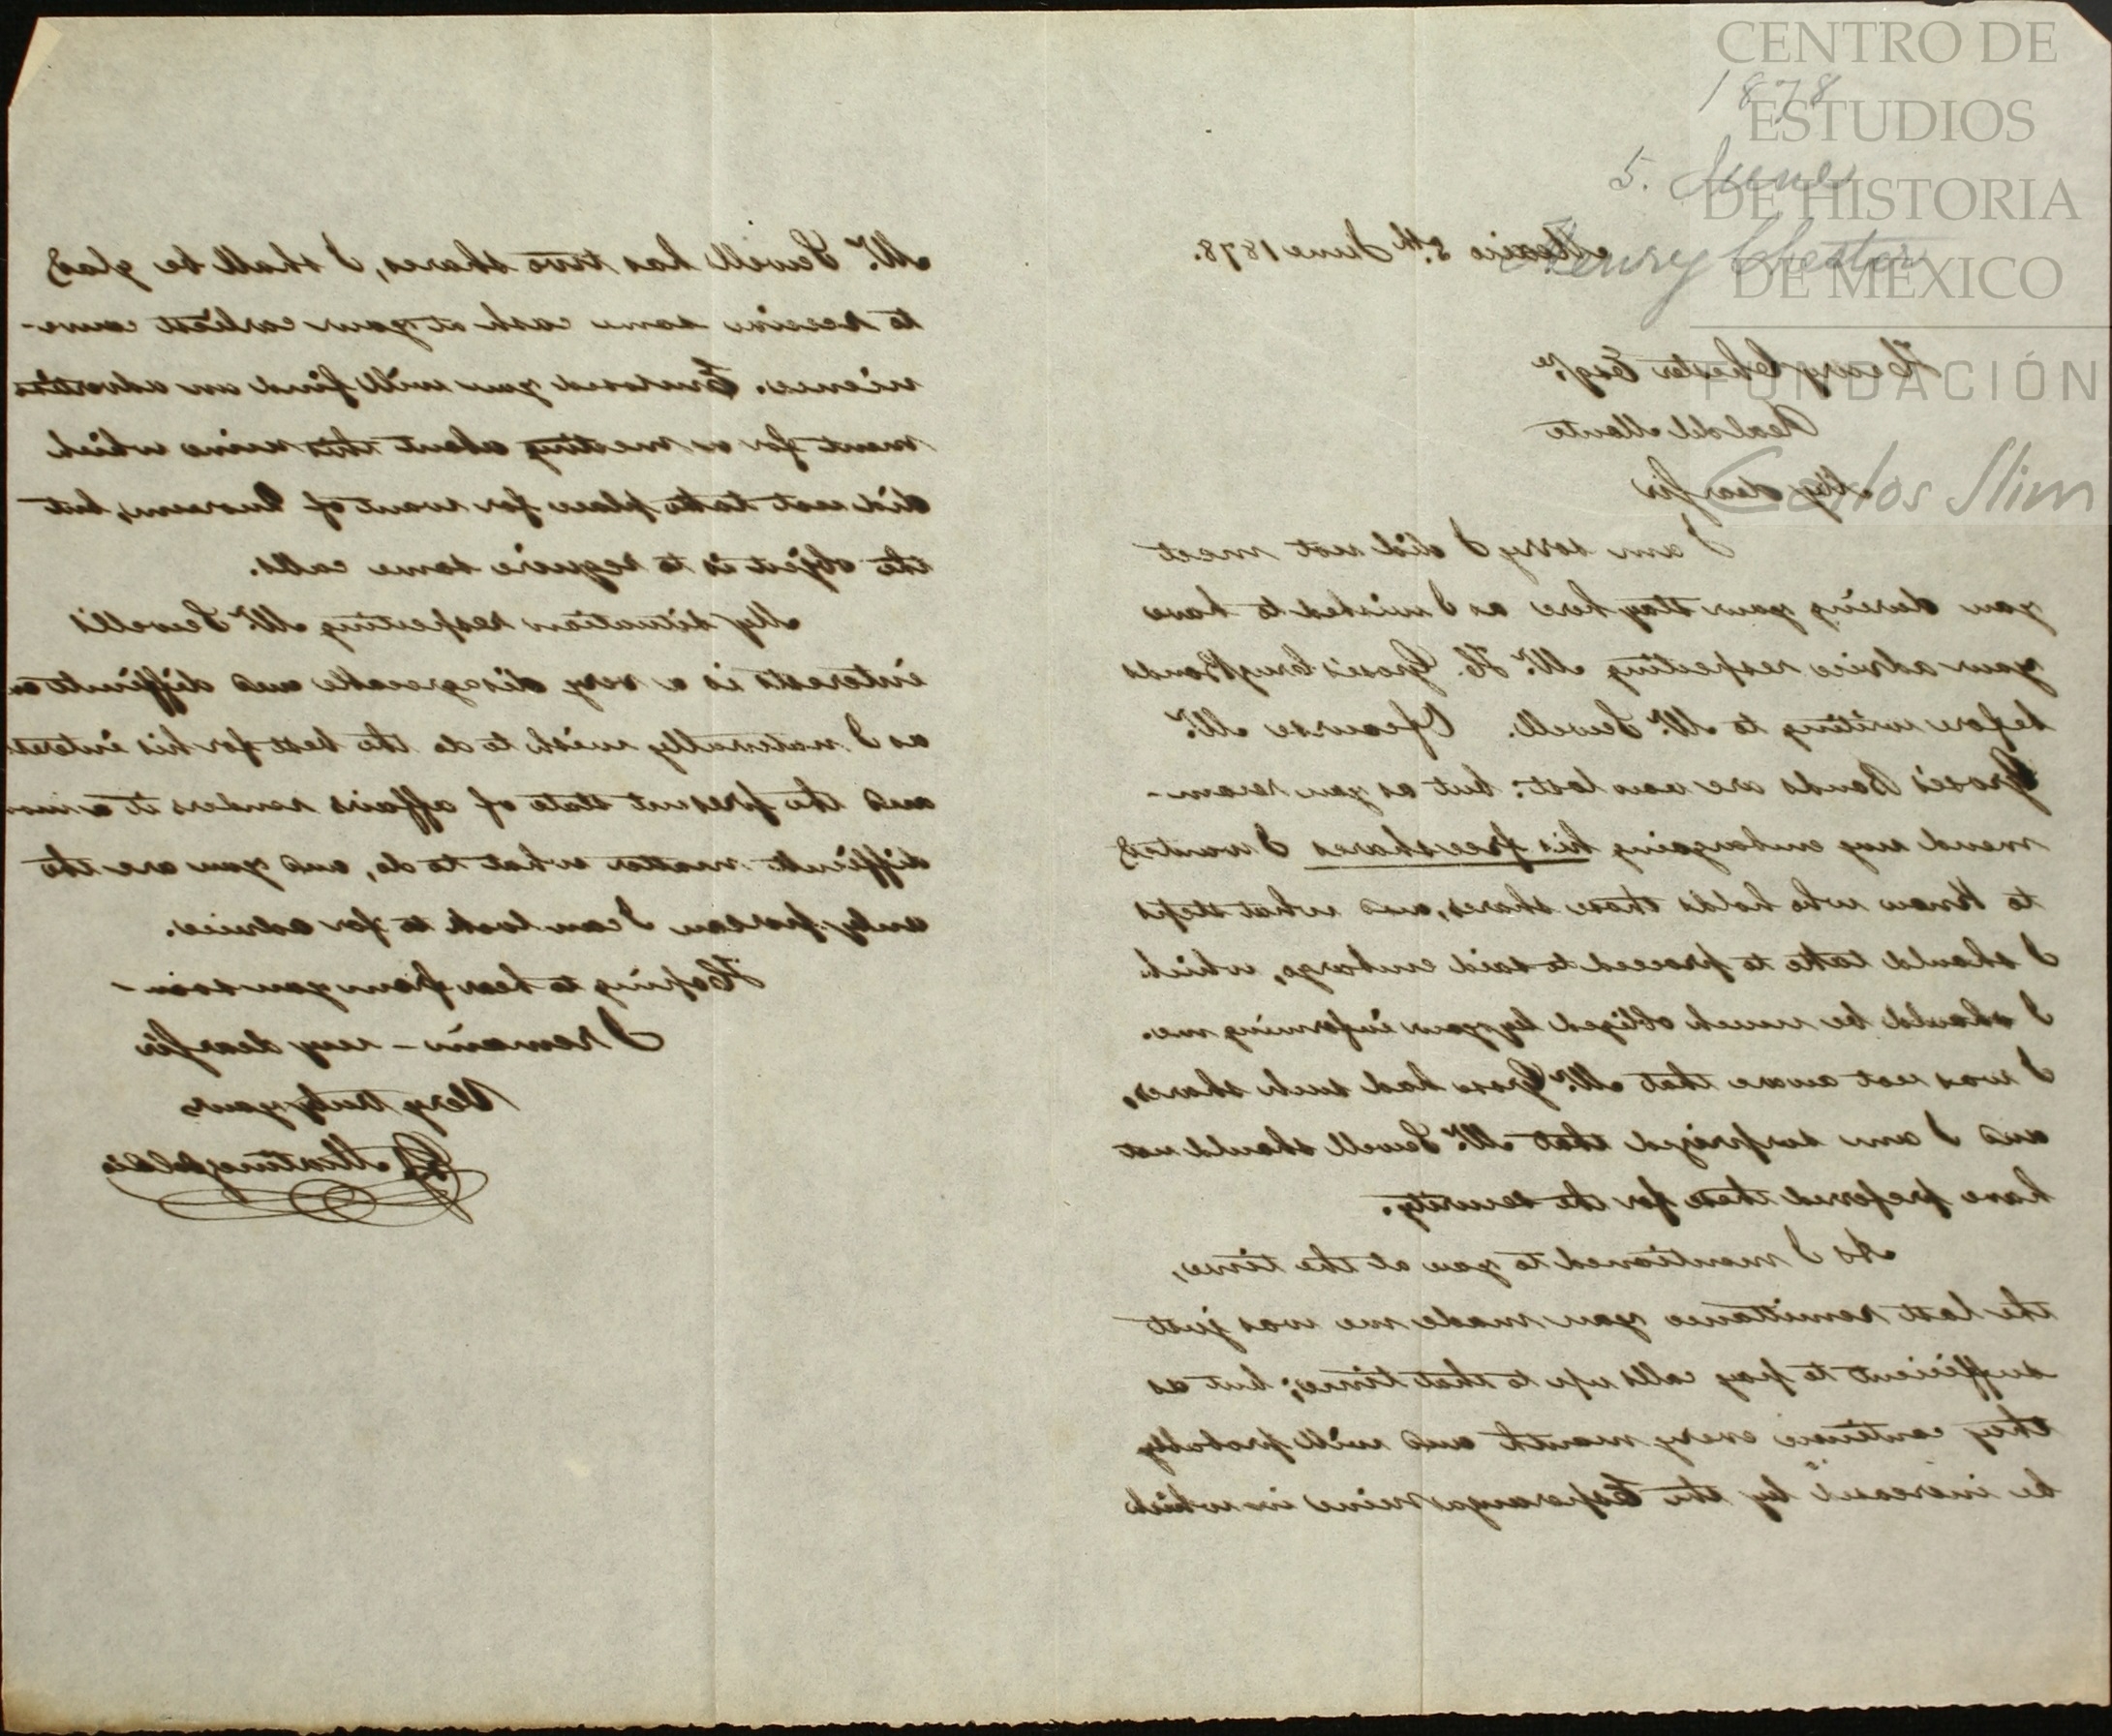 CENTRO DE
ESTUDIOS
DE HISTORIA
DE MÉXICO
FUNDACIÓN
Carlos Slim
1878
5. June
Henry Chester
Mexico 5th June 1878.
Henry Chester Esqre
Real del Monte
My dear Sir
I am sorry I did not meet
you during your stay here as I wished to have
your advice respecting Mr. H. Grose's Bonds
before writing to Mr. Sewell. Of course Mr.
Grose's Bonds are now lost: but as you recom-
mend my embargoing his free shares I wanted
to know who holds those shares, and what steps
I should take to proceed to said embargo, which
I should be much obliged by your informing me.
I was not aware that Mr. Grose had such shares,
and I am surprized that Mr. Sewell should not
have prefered these for the security.
As I mentioned to you at the time,
the last remittance you made me was just
sufficient to pay calls up to that time; but as
they continue every month and will probably
be increased by the Esperanza mine in which
Mr. Sewell has two shares, I shall be glad
to receive some cash at your earliest conve-
nience. Enclosed you will find an advertise
ment for a meeting about this mine which
did not take place for want of Quorum, but
the object is to require some calls.
My situation respecting Mr. Sewell's
interests is a very disagreeable and difficult
as I naturally wish to do the best for his interest
and the present state of affairs renders it a
difficult matter what to do, and you are the
only person I can look to for advice.
Hoping to hear from you soon -
I remain - my dear Sir
Very truly yours